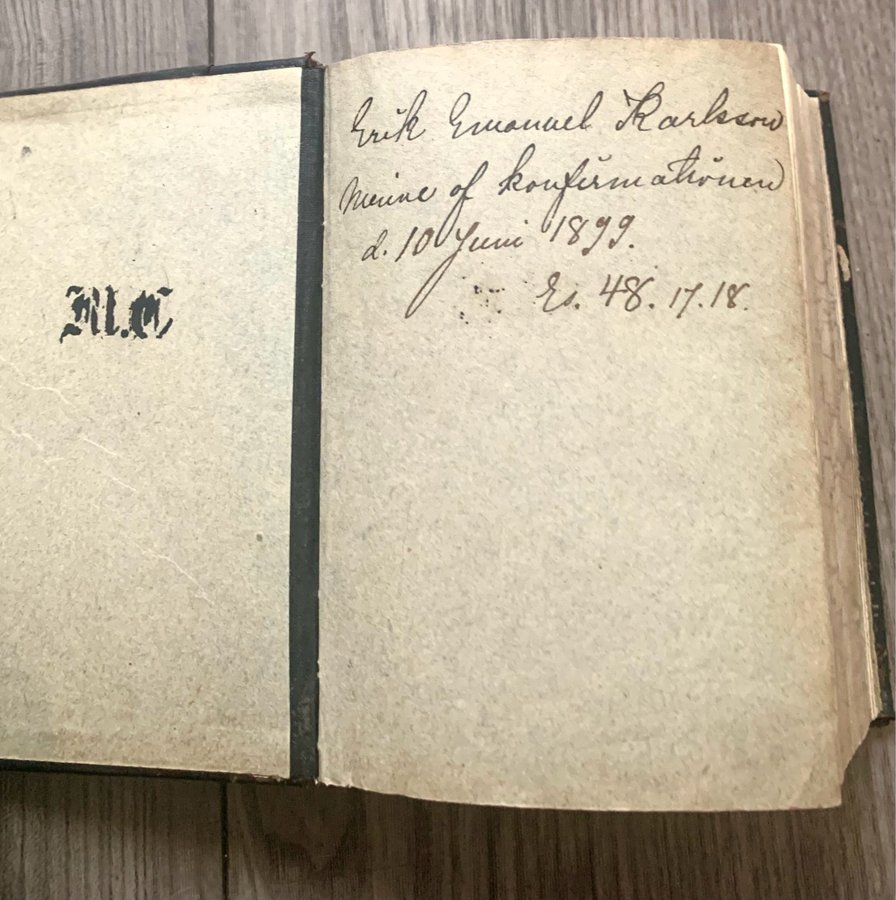 M.C
Erik Emanuel Karlsson
Minne af konfirmationen
d. 10 Juni 1899.
Es. 48. 17. 18.